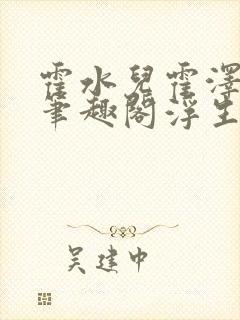 霍水兒霍澤
筆趣閣浮生
吴建中